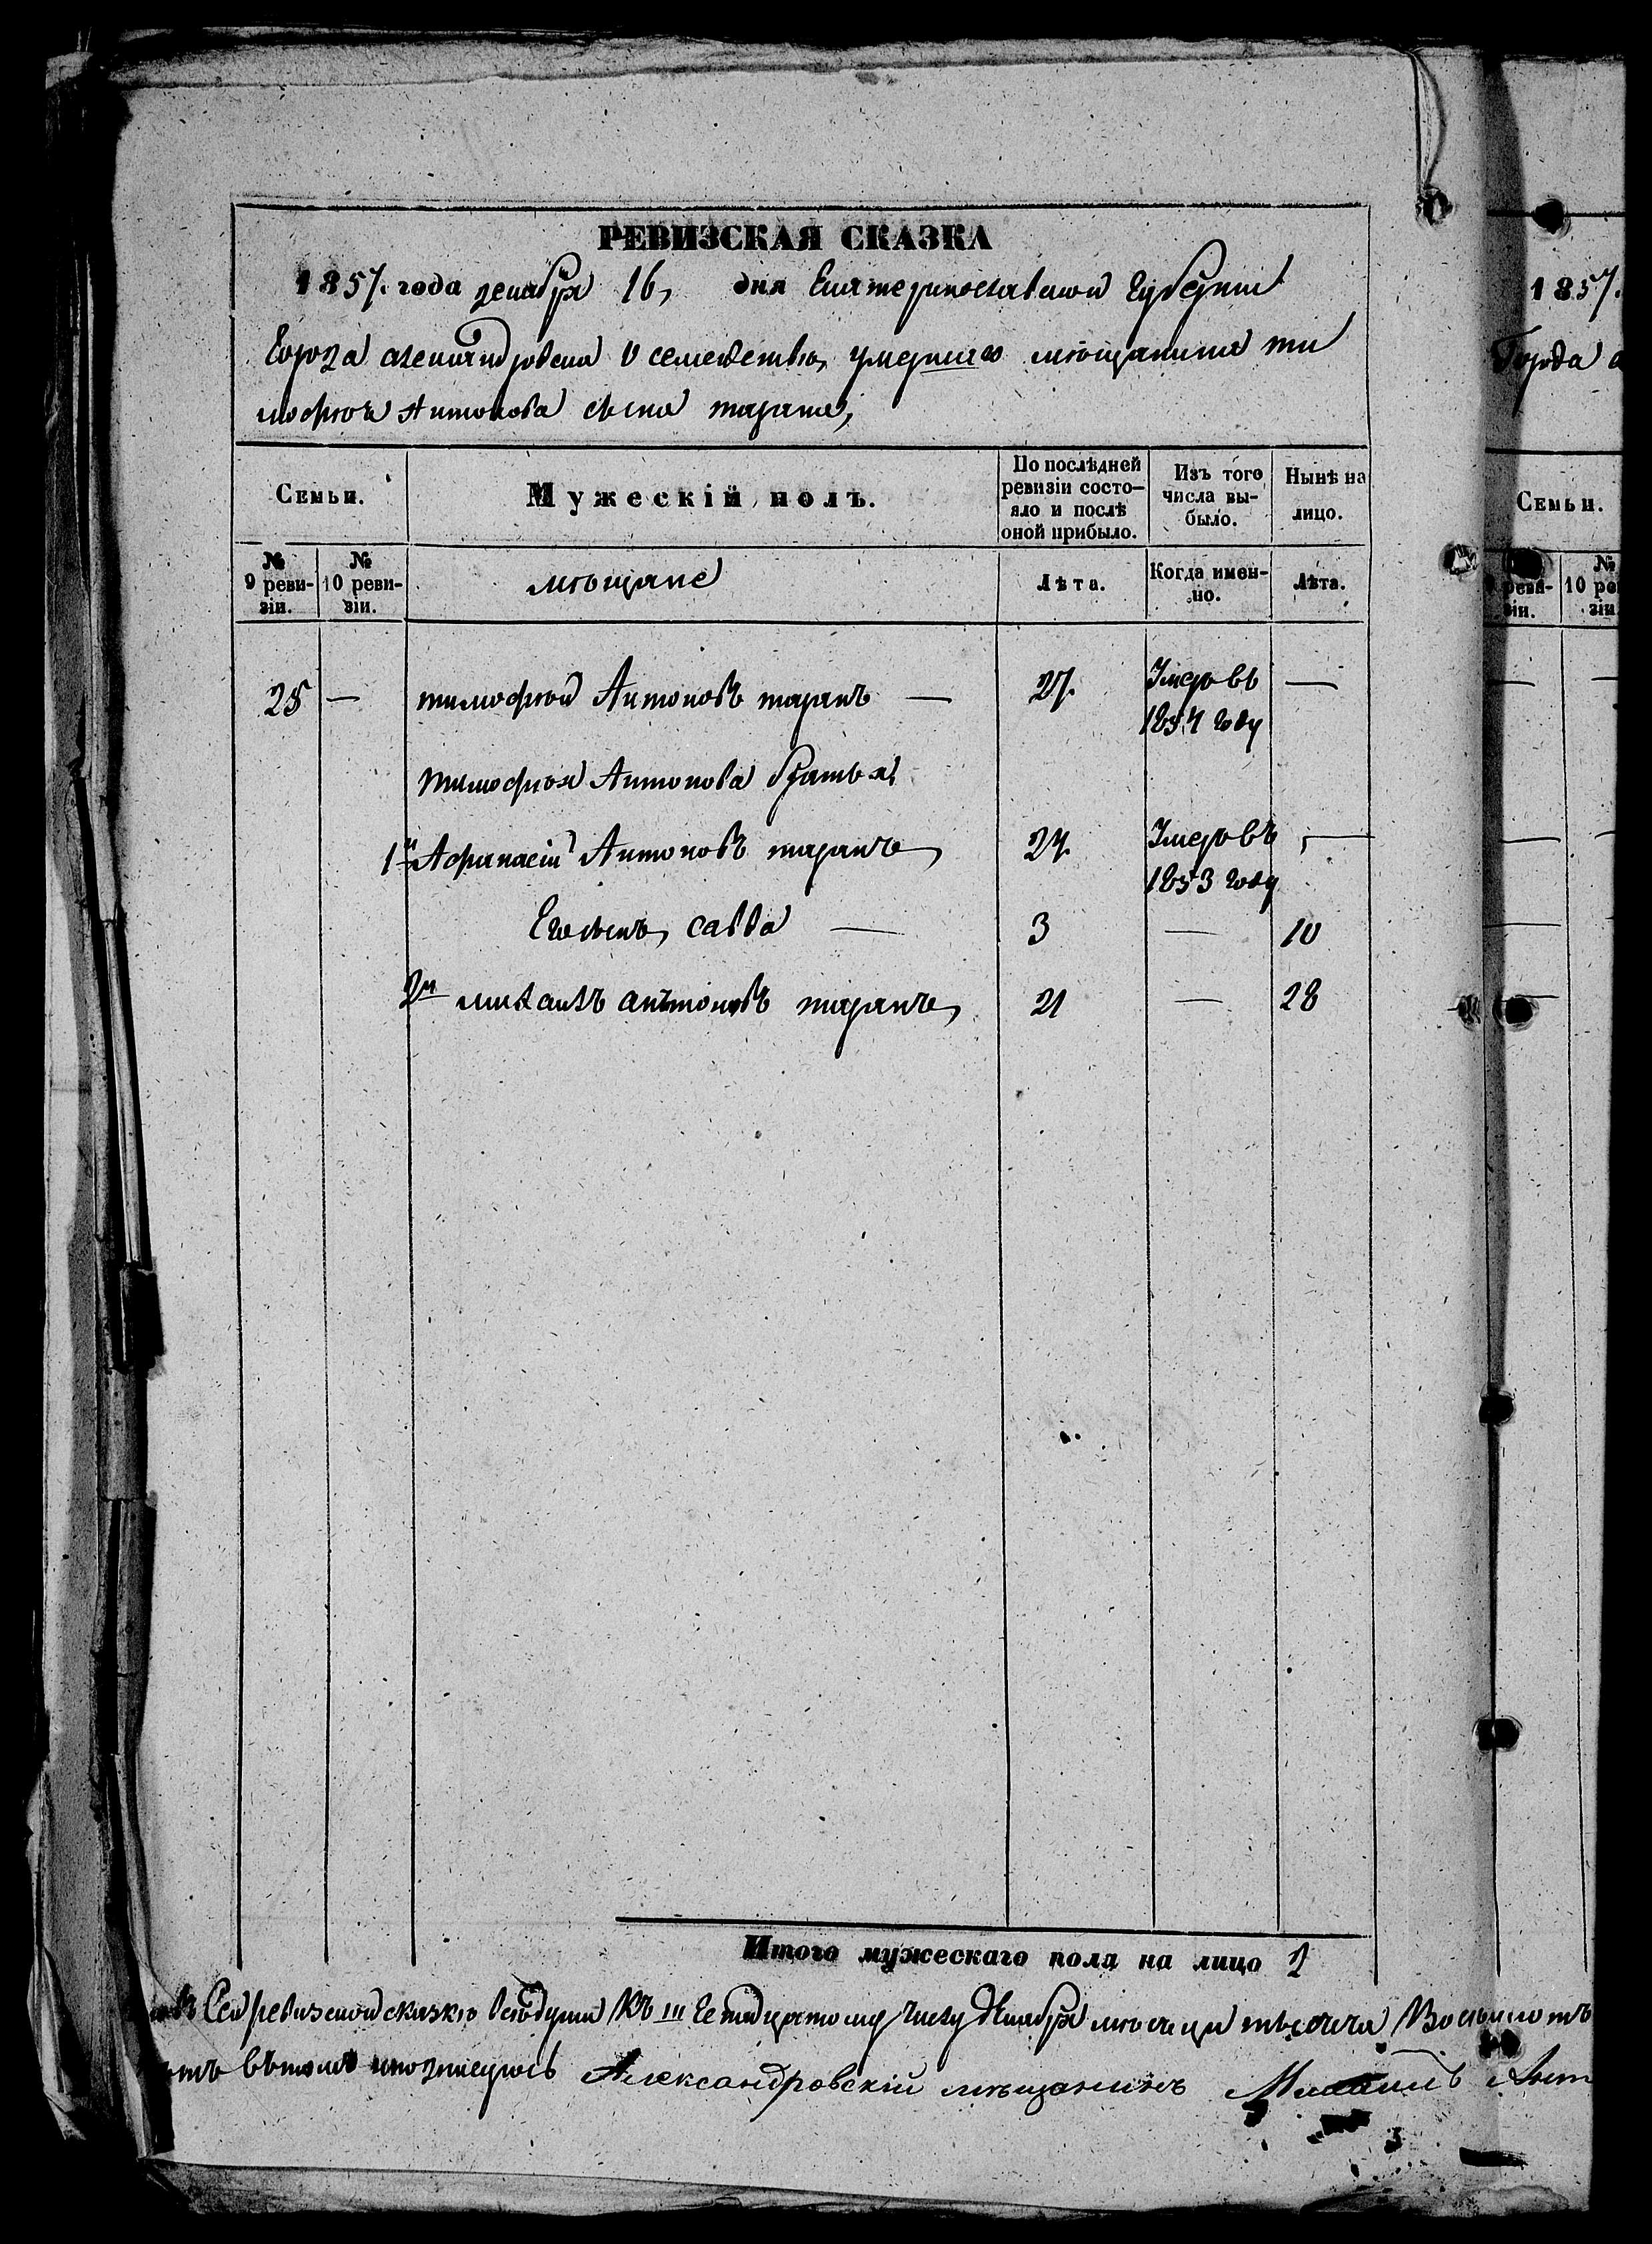 РЕВИЗСКАЯ СКАЗКА
1857. года декабря 16, дня Екатеринославской Губернiи
Города александровска О семействѣ, умершаго мѣщанина ти
мофѣя Антонова сына тарана,
Семьи.
Мужескiй полъ.
По послѣдней
ревизiи состо-
яло и послѣ
оной прибыло.
Изъ того
числа вы-
было.
Нынѣ на
лицо.
№
9 реви-
зiи.
№
10 реви-
зiи.
мѣщане
Лѣта.
Когда имен-
но.
Лѣта.
25 — тимофѣй Антоновъ таранъ — 27. Умеръ въ —
1854 году
тимофѣя Антонова братья
1й Афанасiй Антоновъ таранъ, 24. Умеръ въ —
1853 году
Его сынъ, савва — 3 — 10
2й михаилъ антоновъ таранъ, 21 — 28
Итого мужескаго пола на лицо 2
Сей ревизской сказкѣ къ Декабря мѣсяца тысяча Восьмсотъ
вътомъ Александровскiй мѣщанинъ Михаилъ Ант
1857.
Города а
Семьи.
реви-
зiи.
№
10 ре
зiи